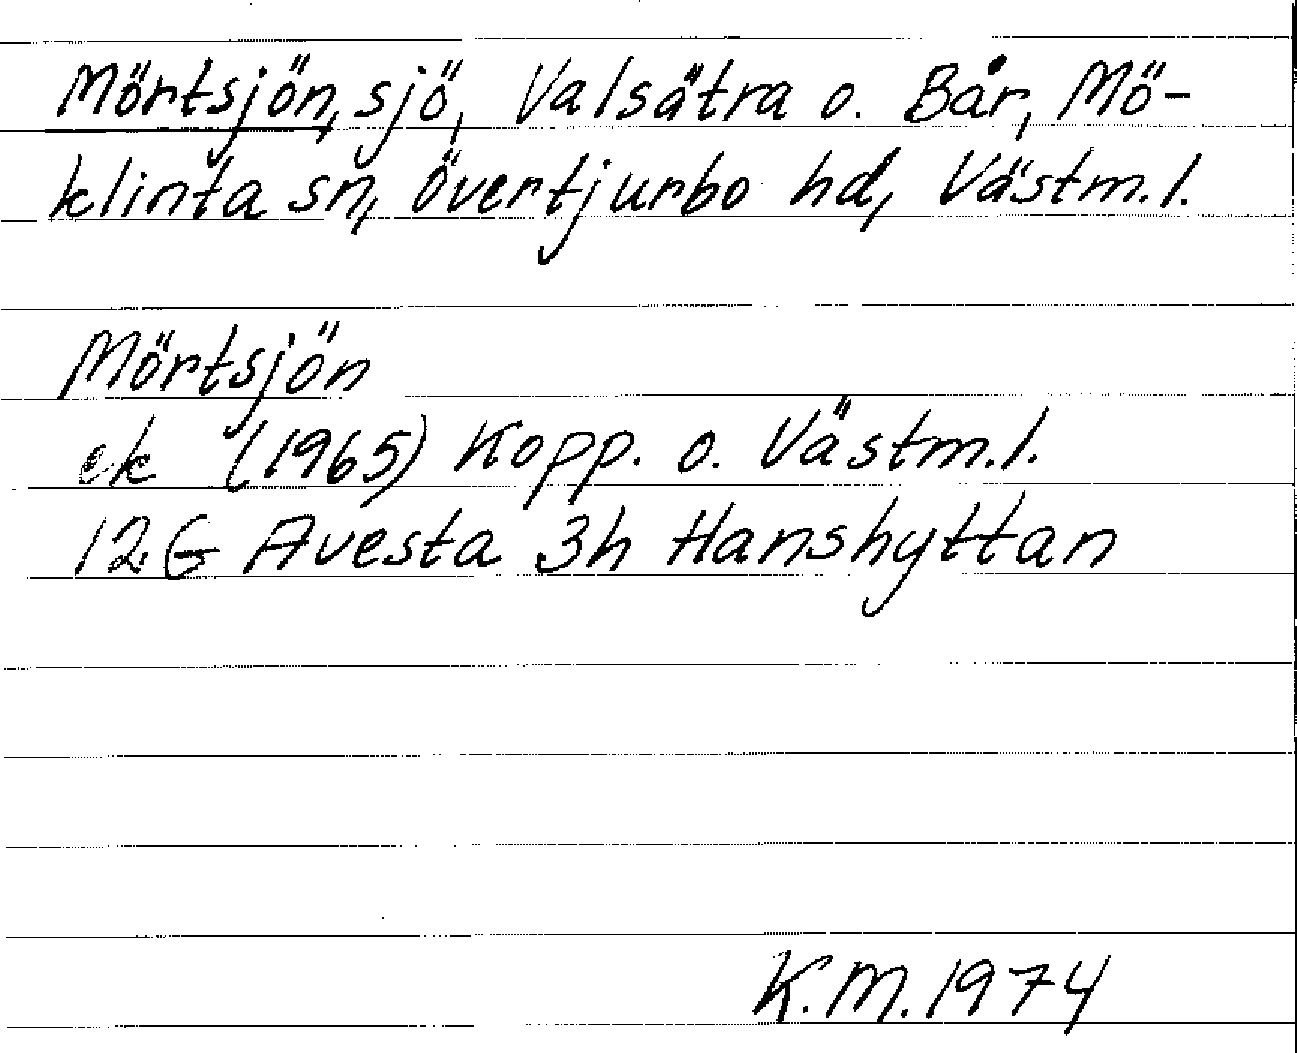 Mörtsjön, sjö, Valsätra o. Bår, Mö-
klinta sn, Övertjurbo hd, Västm.l.
Mörtsjön
ek (1965) Kopp. o. Västm.l.
12G Avesta 3h Hanshyttan
K.M. 1974